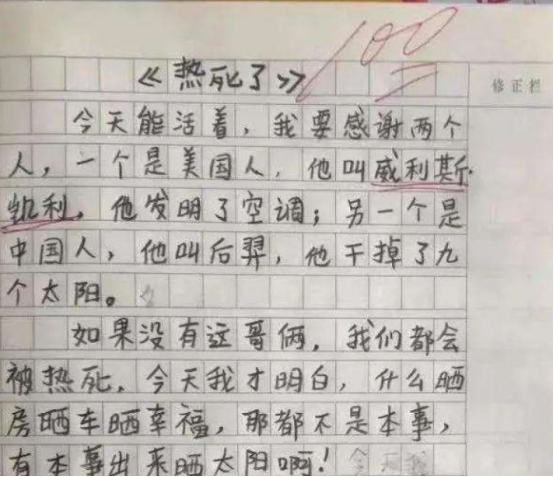 100
《热死了》
修正栏
今天能活着，我要感谢两个
人，一个是美国人，他叫威利斯
凯利，他发明了空调；另一个是
中国人，他叫后羿，他干掉了九
个太阳。
如果没有这哥俩，我们都会
被热死，今天我才明白，什么晒
房晒车晒幸福，那都不是本事，
有本事出来晒太阳啊！